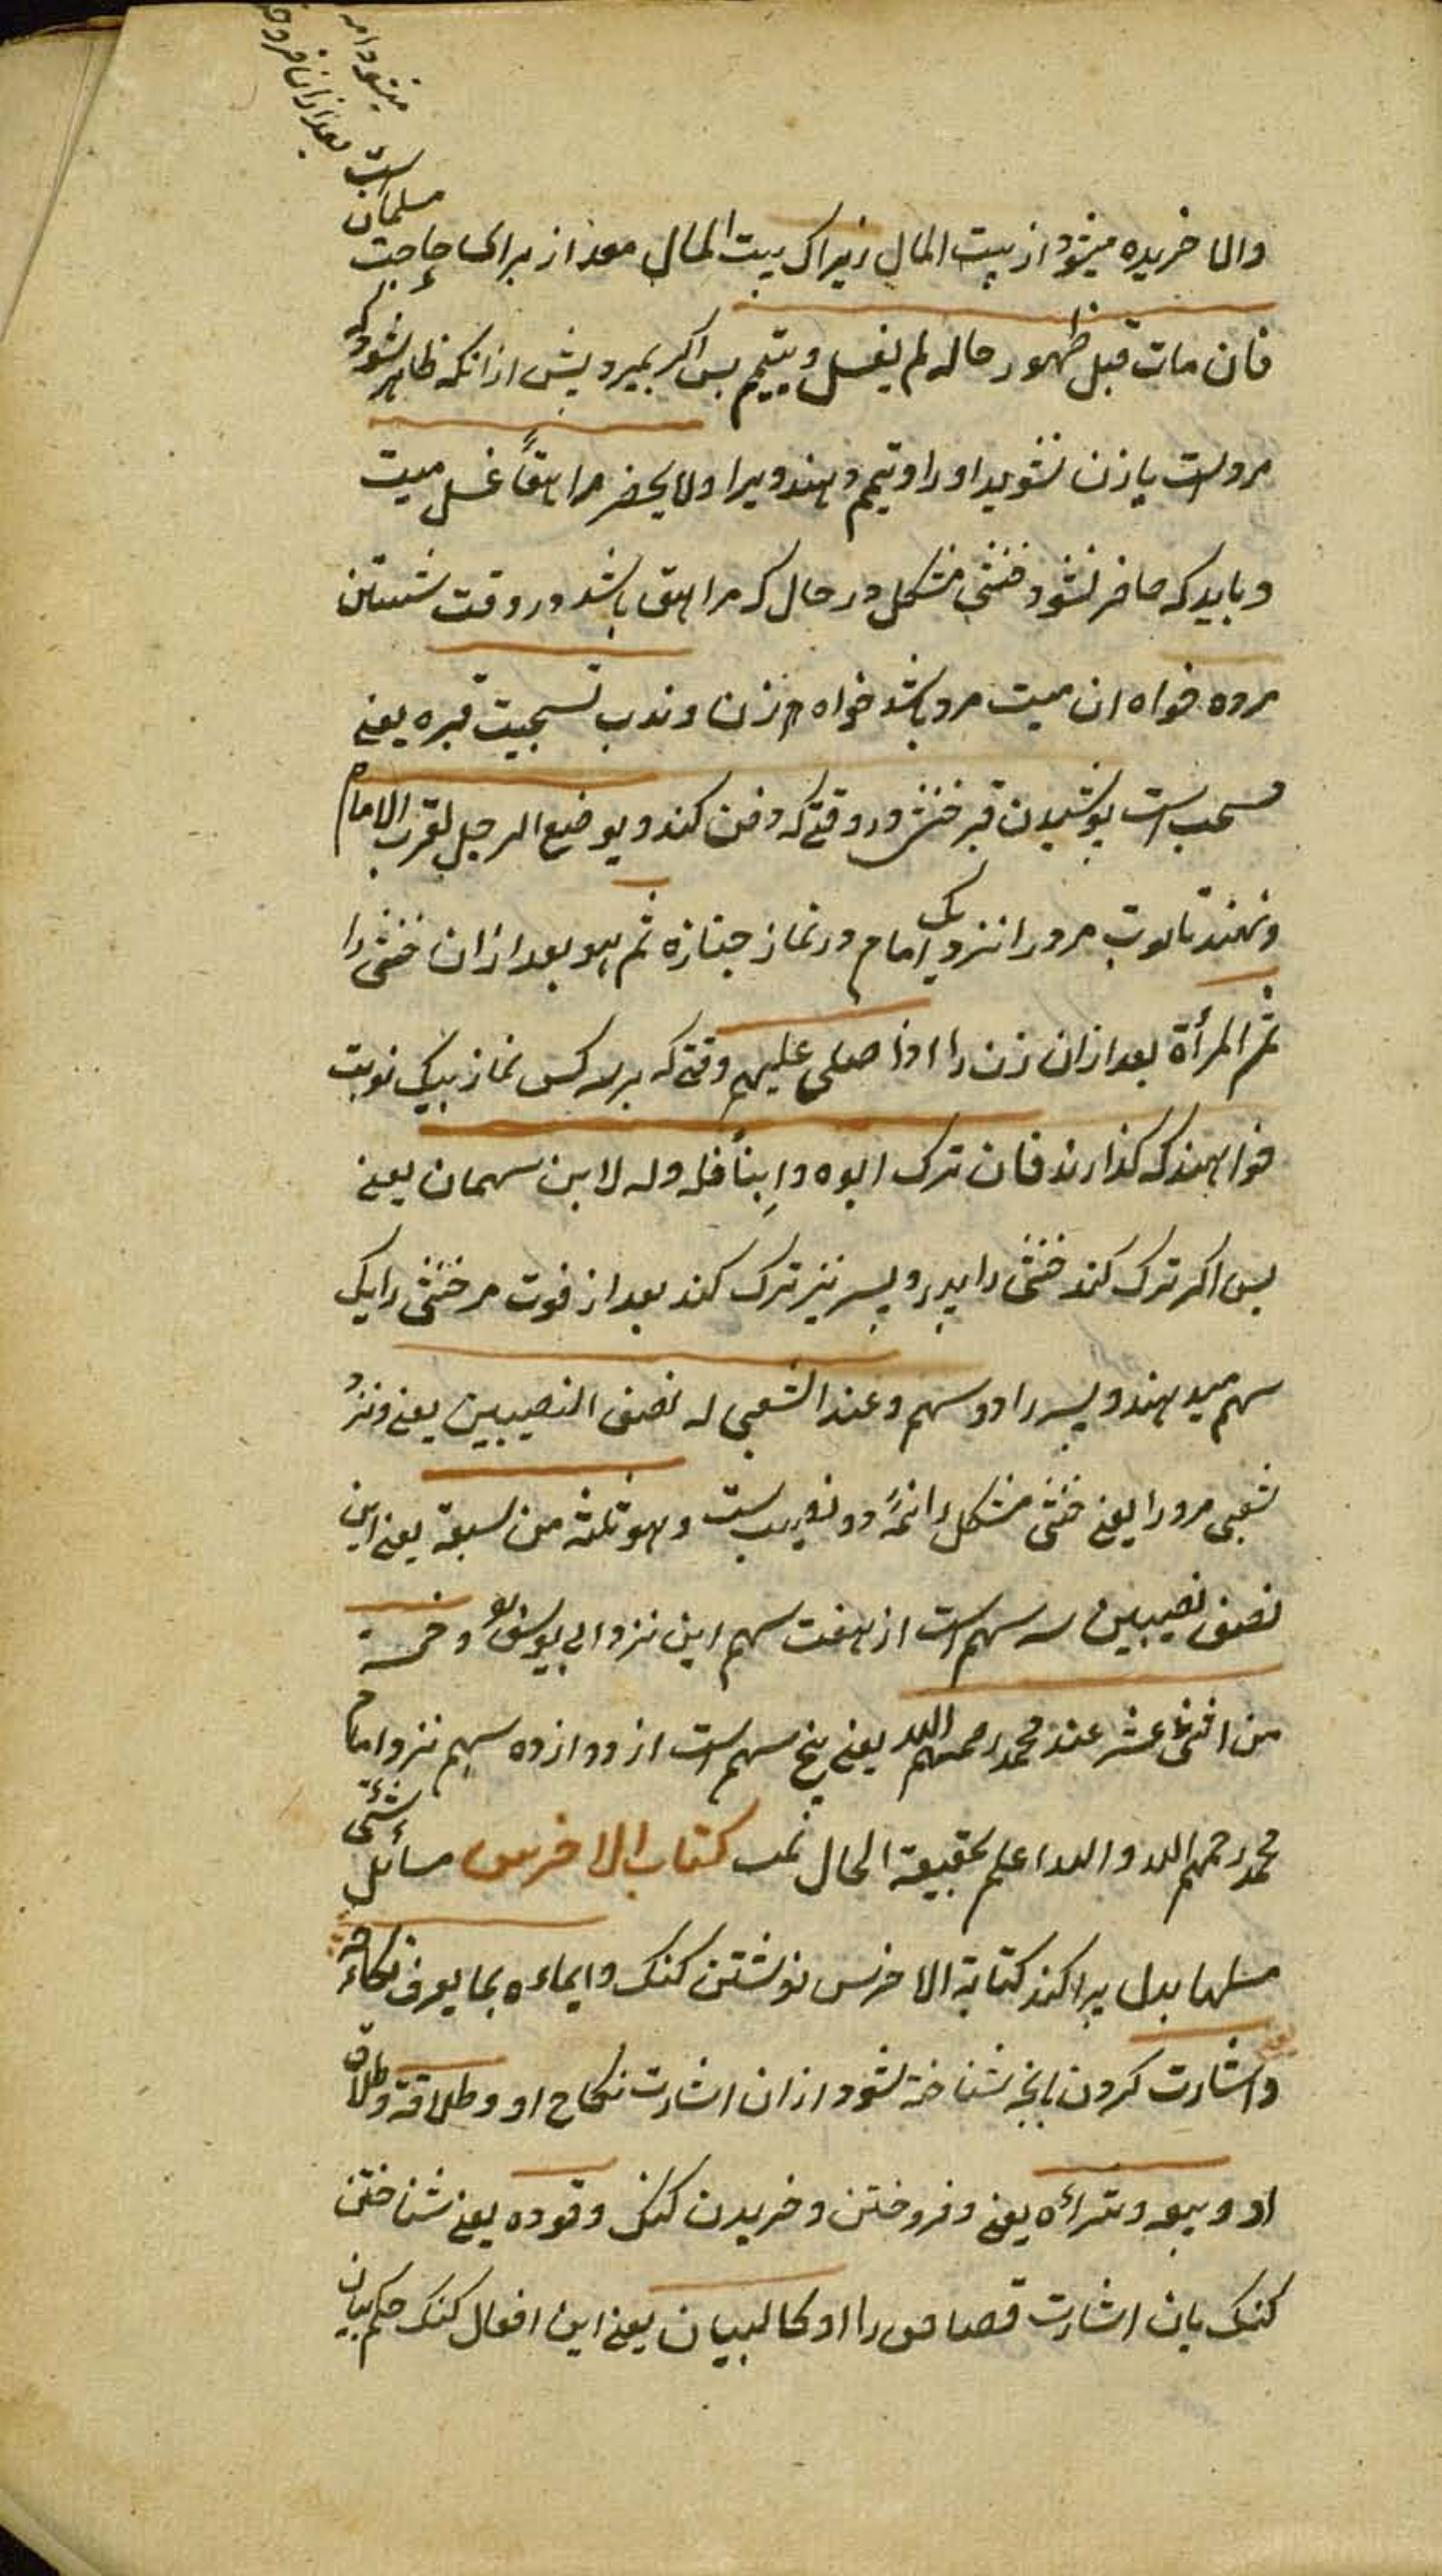 میشود امه
بعد ازان فروخته
والا خریده میشود از بیت المال زیراک بیت المال معد از برای حاجت مسلمانان است
فان مات قبل ظهور حاله لم یغسل و یتیمم پس اکر بمیرد پیش ازانکه ظاهر شود که
مردست یا زن نشوید اورا و تیمم دهند ویرا ولا یحضر مراهقاً غسل میت
و باید که حاضر نشود خنثی مشکل در حال که مراهق باشد در وقت شستن
مرده خواه ان میت مرد باشد خواه زن و ندب تسجیت قبره یعنے
مستحب است پوشیدن قبر خنثی در وقتے که دفن کند و یوضع الرجل بقرب الامام
و نهند تابوت مرد را نزدیک امام در نماز جنازه ثم هو بعد ازان خنثی را
ثم المرأة بعد ازان زن را اذا صلی علیهم وقتے که بر هر سه کس نماز بیک نوبت
خواهند که کذارند فان ترک ابوه وابناً فله وله لابن سهمان یعنے
پس اکر ترک کند خنثی را پدر و پسر نیز ترک کند بعد از فوت مر خنثی را یک
سهم میدهند و پسر را دو سهم و عند الشعبی له نصف النصیبین یعنے و نزد
شعبی مرورا یعنے خنثی مشکل را نیمهٔ دو نصیب ست و هو ثلثة من سبعة یعنے این
نصف نصیبین سه سهم است از هفت سهم این نزد ابی یوسف و خمسة
من اثنی عشر عند محمد رحمهم الله یعنے پنج سهم است از دوازده سهم نزد امام
محمد رحمهم الله والله اعلم بحقیقة الحال تمت کتاب الاخرس مسائل شتّی
مسلها بدل پراکند کتابة الاخرس نوشتن کنک و ایماءه بما یعرف نکاحه
و اشارت کردن بانچه شناخته شود ازان اشارت نکاح او و طلاقه و طلاق
او و بیعه و شراءه یعنے و فروختن و خریدن کنک و قوده یعنے شناختن
کنک بان اشارت قصاص را او کالبیان یعنے این افعال کنک حکم بیان